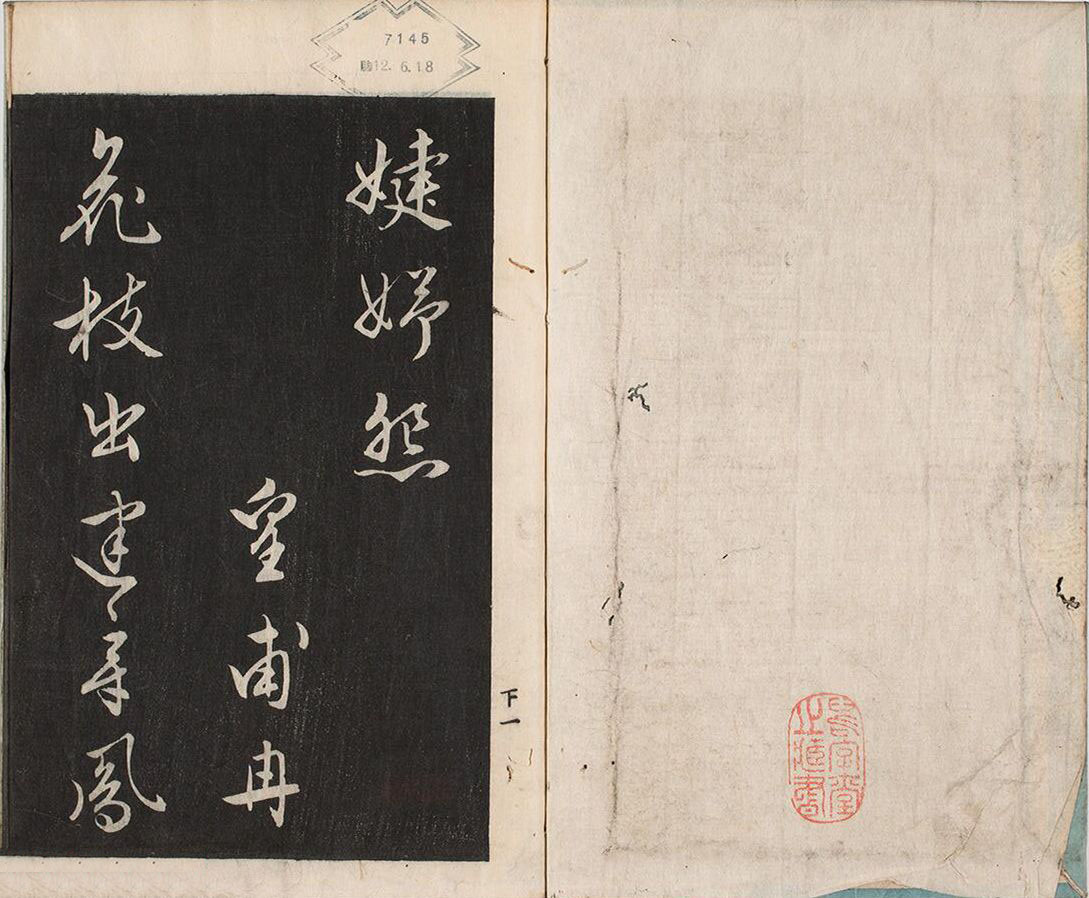 7145
12. 6.18
婕妤怨
皇甫冉
花枝出建章鳳
下一